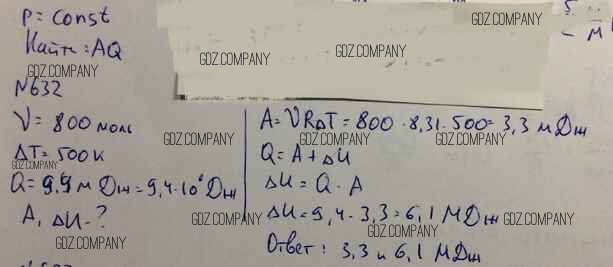 p = const
Найти: AQ
N632
ν = 800 моль
ΔT = 500 K
Q = 9,9 м Дж = 9,4·10⁶ Дж
A, ΔU - ?
A = νRΔT = 800 · 8,31 · 500 = 3,3 мДж
Q = A + ΔU
ΔU = Q - A
ΔU = 9,4 - 3,3 = 6,1 МДж
Ответ: 3,3 и 6,1 МДж
GDZ.COMPANY
GDZ.COMPANY
GDZ.COMPANY
GDZ.COMPANY
GDZ.COMPANY
GDZ.COMPANY
GDZ.COMPANY
GDZ.COMPANY
GDZ.COMPANY
GDZ.COMPANY
GDZ.COMPANY
GDZ.COMPANY
GDZ.COMPANY